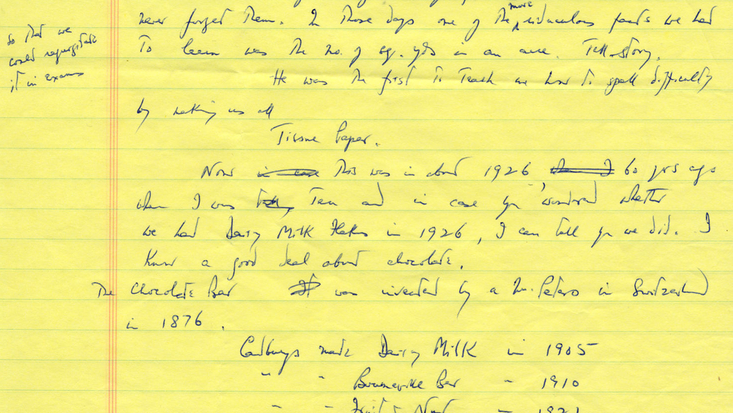 so that we
could regurgitate
it in exams
never forget them. In those days one of the more ridiculous facts we had
to learn was the no. of sq. yds in an acre. Tell story.
He was the first to teach me how to spell difficulty
by making us all
Tissue Paper.
Now in this was in about 1926 60 yrs ago
when I was Ten and in case you wondered whether
we had Dairy Milk Flakes in 1926, I can tell you we did. I
know a good deal about chocolate.
The Chocolate Bar It was invented by a Mr. Peters in Switzerland
in 1876.
Cadburys made Dairy Milk in 1905
" " Bournville Bar - 1910
" " Fruit & Nut - 1921